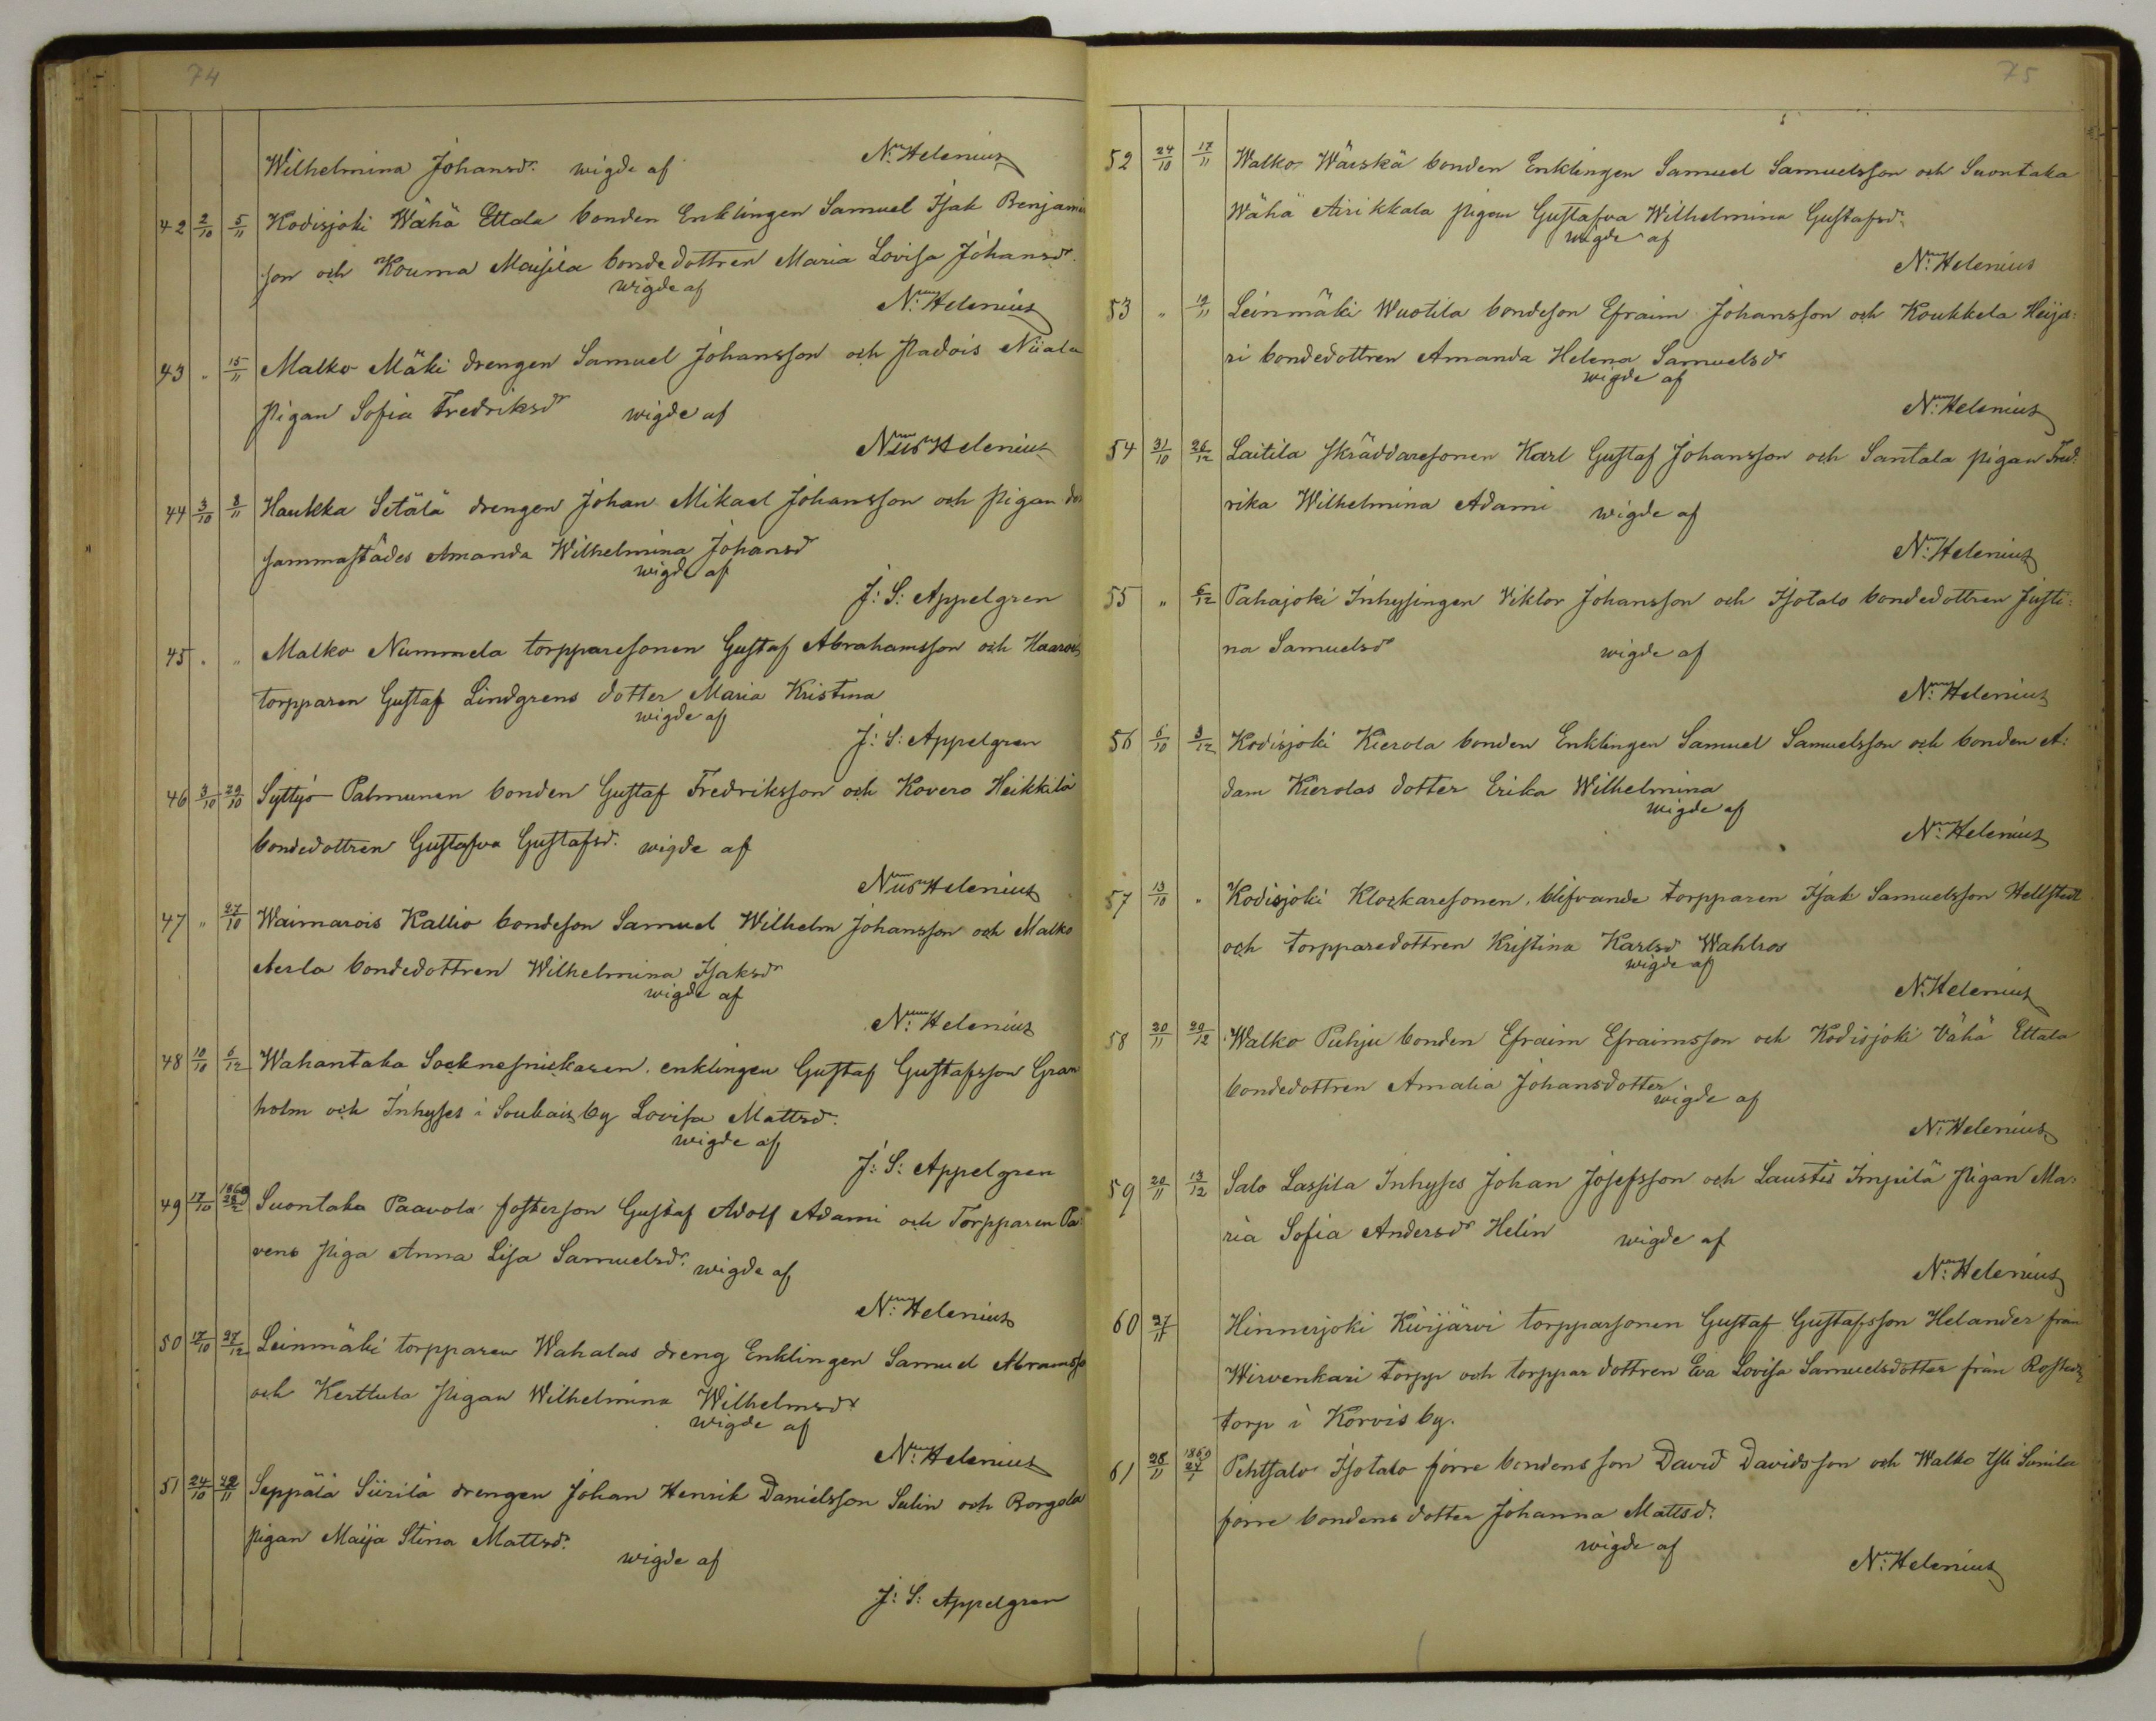 74
Wilhelmina Johansd:r wigde af N:um Helenius
42 2/10 5/11 Kodisjoki Wähä Ettala bonden Enklingen Samuel Isak Benjamin
son och Kouma Maijsla bondedottren Maria Lovisa Johansd:r
wigde af
N:um Helenius
43 " 15/11 Malko Mäki drengen Samuel Johansson och Padois Niiala
pigan Sofia Fredriksd:r wigde af
Helenius
44 3/10 8/11 Haukka Setälä drengen Johan Mikael Johansson och pigan
sammastädes Amanda Wilhelmina Johansd
wigde af
J: S: Appelgren
45 " " Malko Nummela torpparesonen Gustaf Abrahamsson och Haarois
torpparen Gustaf Lindgrens dotter Maria Kristina
wigde af
J: S: Appelgren
46 3/10 29/10 Syttyö Palmunen bonden Gustaf Fredriksson och Kovero Heikkilä
bondedottren Gustafva Gustafsd: wigde af
Helenius
47 " 27/10 Waimarois Kallio bondeson Samuel Wilhelm Johansson och Malko
Aerla bondedottren Wilhelmina Isaksd:r
wigde af
N:um Helenius
48 10/10 6/12 Wahantaka Socknesnickaren, enklingen Gustaf Gustafsson Gran
holm och Inhyses i Soukais by Lovisa Mattsd:
wigde af
J: S: Appelgren
49 17/10 Suontaka Paavola fosterson Gustaf Adolf Adami och Torpparen Pa:
vens piga Anna Lisa Samuelsd:r wigde af
N:um Helenius
50 17/10 27/12 Leinmäki torpparen Wahalas dreng Enklingen Samuel Abramsso
och Kerttula pigan Wilhelmina Wilhelmsd:r
wigde af
N:um Helenius
51 24/10 Seppälä Siirilä drengen Johan Henrik Danielsson Salin och Borgola
pigan Maija Stina Mattsd:r
wigde af
J: S: Appelgren
75
52 24/10 17/11 Walko Wäiskä bonden Enklingen Samuel Samuelsson och Suontaka
Wähä Airikkala pigan Gustafva Wilhelmina Gustafsd:r
wigde af
N:um Helenius
53 " 19/11 Leinmäki Wuotila bondeson Efraim Johansson och Koukkela Heija:
ri bondedottren Amanda Helena Samuelsd:r
wigde af
N:um Helenius
54 31/10 26/12 Laitila skräddaresonen Karl Gustaf Johansson och Santala pigan Fred:
rika Wilhelmina Adami wigde af
N:um Helenius
55 " 6/12 Pahajoki Inhysingen Viktor Johansson och Isotalo bondedottren Justi:
na Samuelsd:r wigde af
N:um Helenius
56 5/10 3/12 Kodisjoki Kierola bonden Enklingen Samuel Samuelsson och bonden A:
dam Kierolas dotter Erika Wilhelmina
wigde af
N:um Helenius
57 13/10 " Kodisjoki Klockaresonen, blifvande torpparen Isak Samuelsson Hellstedt
och torpparedottren Kristina Karlsd Wahlros
wigde af
N:um Helenius
58 20/11 29/12 Walko Puhju bonden Efraim Efraimsson och Kodisjoki Vähä Ettala
bondedottren Amalia Johansdotter
wigde af
N:um Helenius
59 20/11 13/12 Salo Lassila Inhyses Johan Josefsson och Laustis Impilä pigan Ma:
ria Sofia Andersd:r Helin wigde af
N:um Helenius
60 27/11 Hinnerjoki Kivijärvi torpparsonen Gustaf Gustafsson Helander från
Wirvenkari torpp och torppar dottren Eva Lovisa Samuelsdotter från
torp i Korvis by.
61 28/11 1869 27/1 Pehtsalo Isotalo förre bondens son David Davidsson och Walko Yli Simila
förre bondens dotter Johanna Mattsd:
wigde af
N:um Helenius